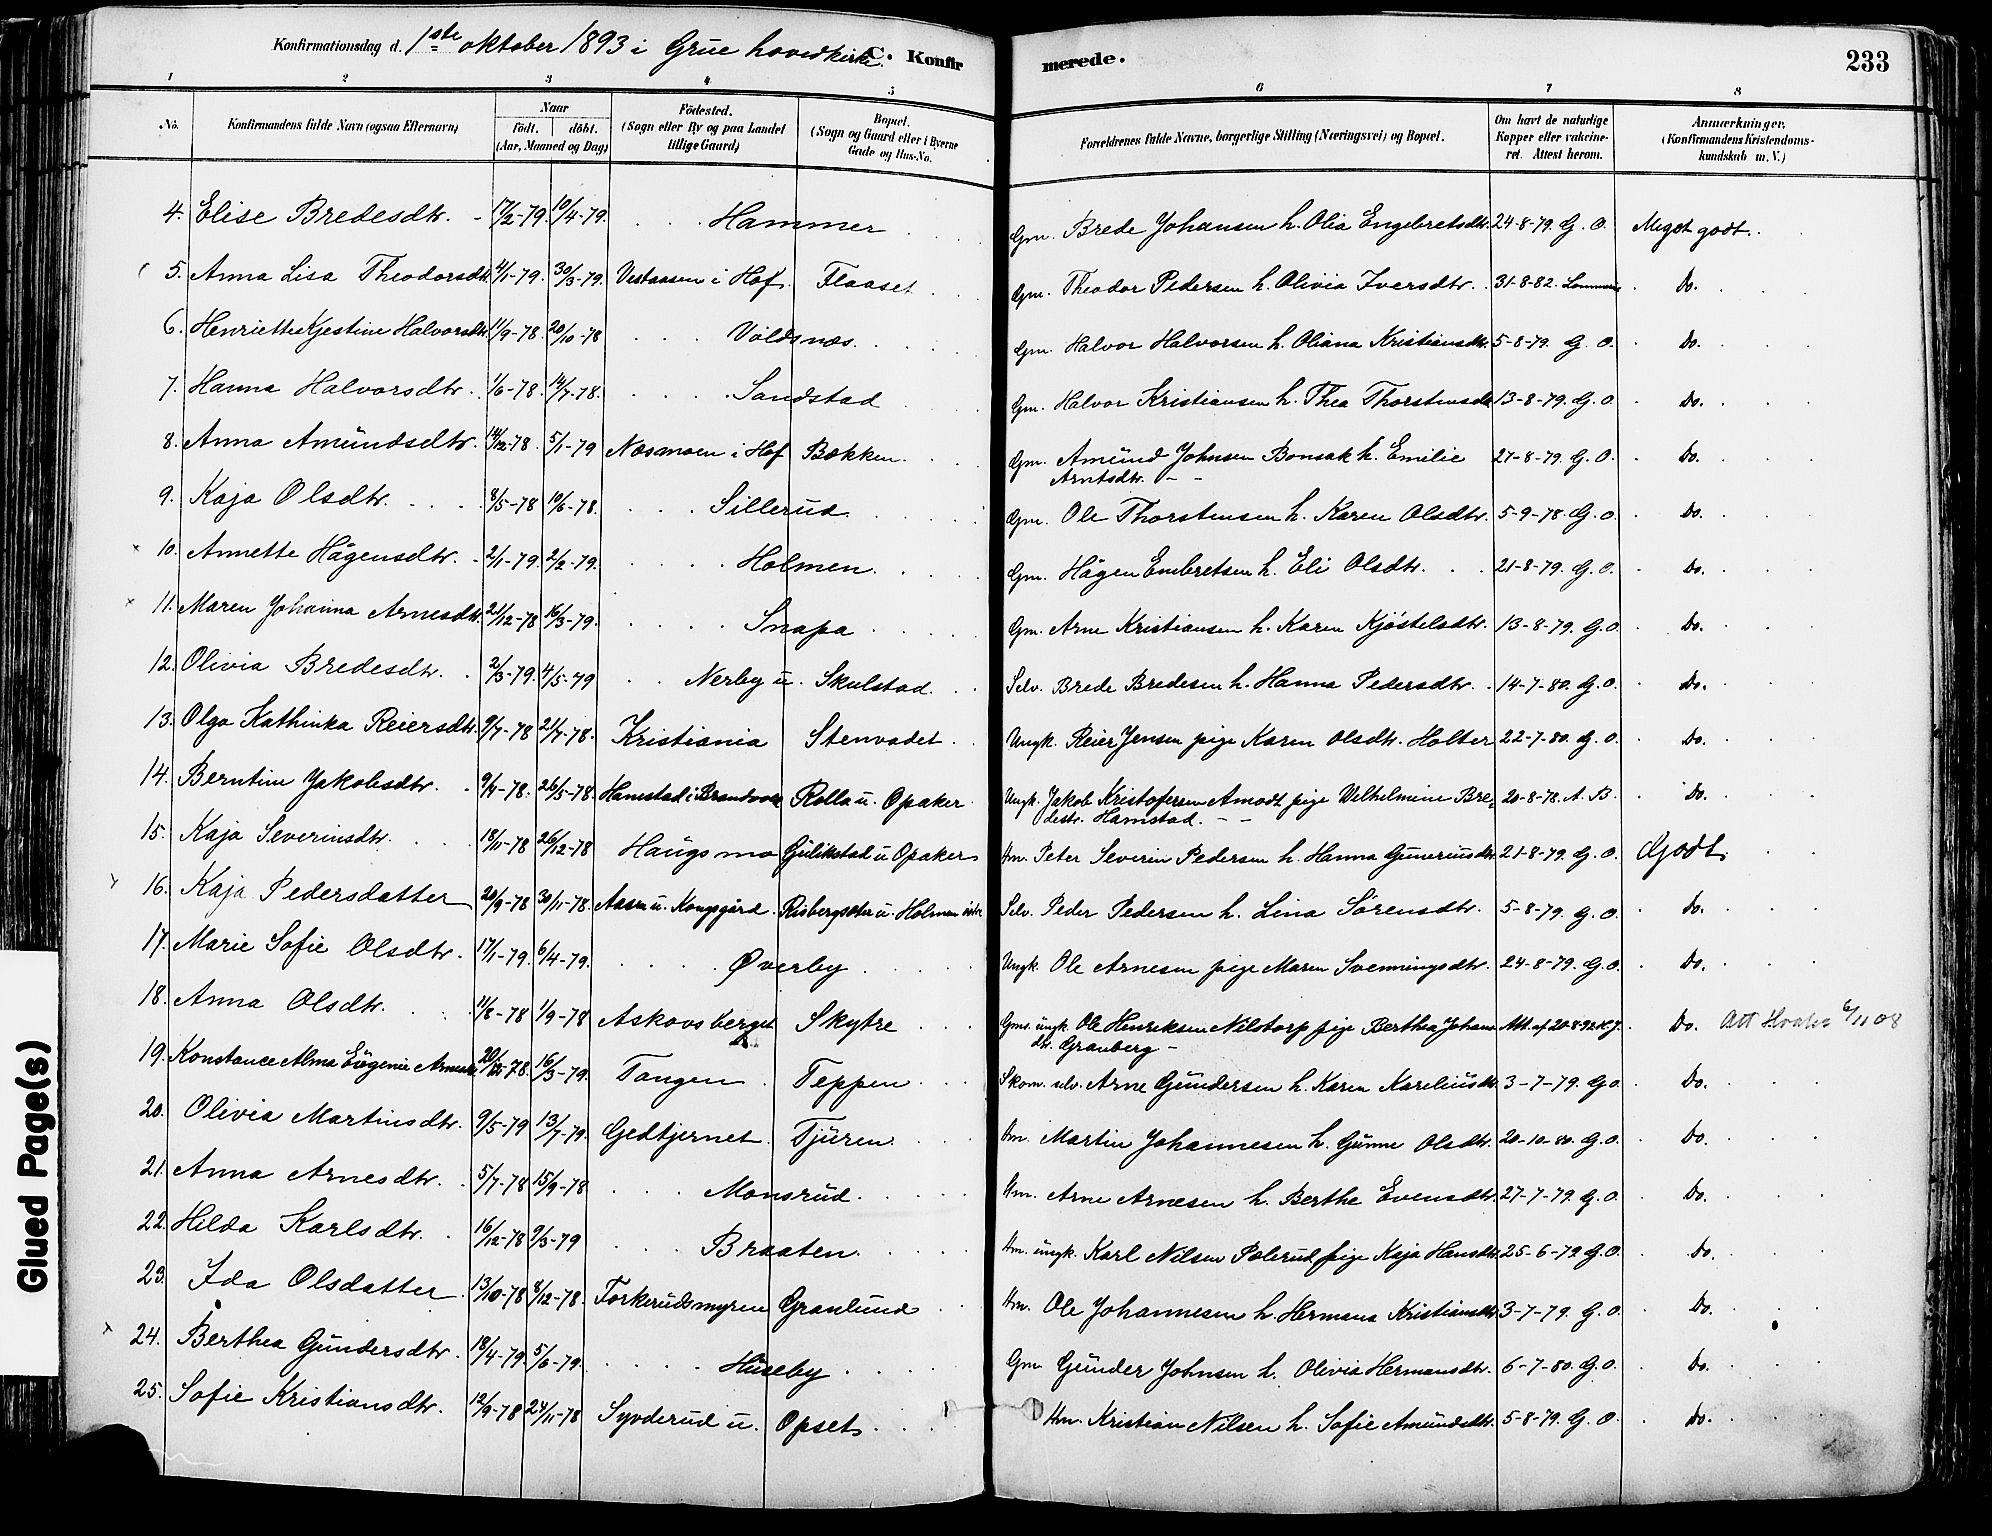 Konfirmationsdag d. 1ste oktober 1893 i Grue hovedkirke. C. Konfirmerede. 233
1 2 3 4 5 6 7 8
No. Konfirmandens fulde Navn (ogsaa Efternavn) Naar födt. döbt. (Aar, Maaned og Dag) Födested. (Sogn eller By og paa Landet tillige Gaard) Bopæl. (Sogn og Gaard eller i Byerne Gade og Hus-No. Forældrenes fulde Navne, borgerlige Stilling (Næringsvei) og Bopæl. Om havt de naturlige Kopper eller vakcineret. Attest herom. Anmærkninger, (Konfirmandens Kristendomskundskab m. V.)
4. Elise Bredesdtr. 17/2-79. 10/4-79. Hammer Gm. Brede Johansen h. Olia Engebretsdtr. 24-8-79. G. O. Meget godt.
5. Anna Lisa Theodorsdtr. 4/1-79. 30/3-79. Vestaasen i Hof. Flaaset Gm. Theodor Pedersen h. Olivia Iversdtr. 31-8-82. Do.
6. Henriette Kjestine Halvorsdtr. 11/9-78. 20/10-78 Voldsnæs. Gm. Halvor Halvorsen h. Oliana Kristiansdtr. 5-8-79. G. O. Do.
7. Hanna Halvorsdtr. 1/6-78. 14/7-78. Sandstad Gm. Halvor Kristiansen h. Thea Thorstensdtr. 13-8-79. G. O. Do.
8. Anna Amündsdtr. 14/12-78. 5/1-79 Næsmoen i Hof Bækken. Gm. Amünd Johnsen Bonsak h. Emilie Arntsdtr. 27-8-79. G. O. Do.
9. Kaja Olsdtr. 8/5-78 10/6-78. Sillerud Gm. Ole Thorstensen h. Karen Olsdtr. 5-9-78. G. O. Do.
x 10. Annette Hågensdtr. 2/1-79. 2/2-79. Holmen. Gm. Hågen Embretsen h. Eli Olsdtr. 21-8-79. G. O. Do.
x 11. Maren Johanna Arnesdtr. 21/12-78 16/3-79. Snapa Gm. Arne Kristiansen h. Karen Kjöstelsdtr. 13-8-79. G. O. Do.
12. Olivia Bredesdtr. 2/3-79. 4/5-79 Nerby u. Skulstad. Selv. Brede Bredesen h. Hanna Pedersdtr. 14-7-80. G. O. Do.
13. Olga Kathinka Reiersdtr. 9/7-78 21/7-78. Kristiania Stenvadet. Ungk. Reier Jensen pige Karen Olsdtr. Holter 22-7-80. G. O. Do.
14. Berntine Jakobsdtr. 9/4-78. 26/5-78. Hamstad i Brandvold Rolla u. Opaker Ungk. Jakob Kristofersen Amodt pige Wilhelmine Bredestr. Hamstad. 20-8-78. A. B. Do.
15. Kaja Severinsdtr. 18/11-78 26/12-78 Haugsmo Gulikstad u Opaker Hm. Peter Severin Pedersen h. Hanna Guneriusdtr. 21-8-79. G. O. Godt.
16. Kaja Pedersdatter 20/9-78 30/11-78. Aasen u. Kongsgård. Risbergsæter u. Holmen Selv. Peder Pedersen h. Lina Sörensdtr. 5-8-79. G. O. Do.
17. Marie Sofie Olsdtr. 17/1-79. 6/4-79. Øverby Ungk. Ole Arnesen pige Maren Svenningsdtr. 24-8-79. G. O. Do.
18. Anna Olsdtr. 11/8-78 1/9-78 Askovsberget Skytre Gms. ungk. Ole Henriksen Nilstorp pige Berthea Johansdtr. Granberg Att. af 20-8-92 Do. Att 6/11 08
19. Konstance Alma Eugenie Arnesdtr. 20/12-78. 16/3-79. Tangen Teppen Skom. selv. Arne Gundersen h. Karen Kareliusdtr. 3-7-79. G. O. Do.
20. Olivia Martinsdtr. 9/5-79 13/7-79. Gedtjernet. Tjuren. Hm. Martin Johannesen h. Gunne Olsdtr. 20-10-80. G. O. Do.
21. Anna Arnesdtr. 5/7-78 15/9-78 Monsrud. Hm. Arne Arnesen h. Berthe Evensdtr. 27-7-79. G. O. Do.
22. Hilda Karlsdtr. 16/12-78 9/3-79 Braaten. Hm. ungk. Karl Nilsen Polerud pige Kaja Hansdtr. 25-6-79. G. O. Do.
23. Ida Olsdatter 13/10-78 8/12-78. Torkerudsmyren Granlund Hm. Ole Johannesen h. Hermana Kristiansdtr. 3-7-79. G. O. Do.
24. Berthea Gundersdtr. 18/4-79. 5/6-79. Huseby Gm. Gunder Johnsen h. Olivia Hermansdtr. 6-7-80. G. O. Do.
25. Sofie Kristiansdtr. 12/9-78 24/11-78 Syvderud u. Opset. Hm. Kristian Nilsen h. Sofie Amundsdtr. 5-8-79. G. O. Do.
Glued Page(s)